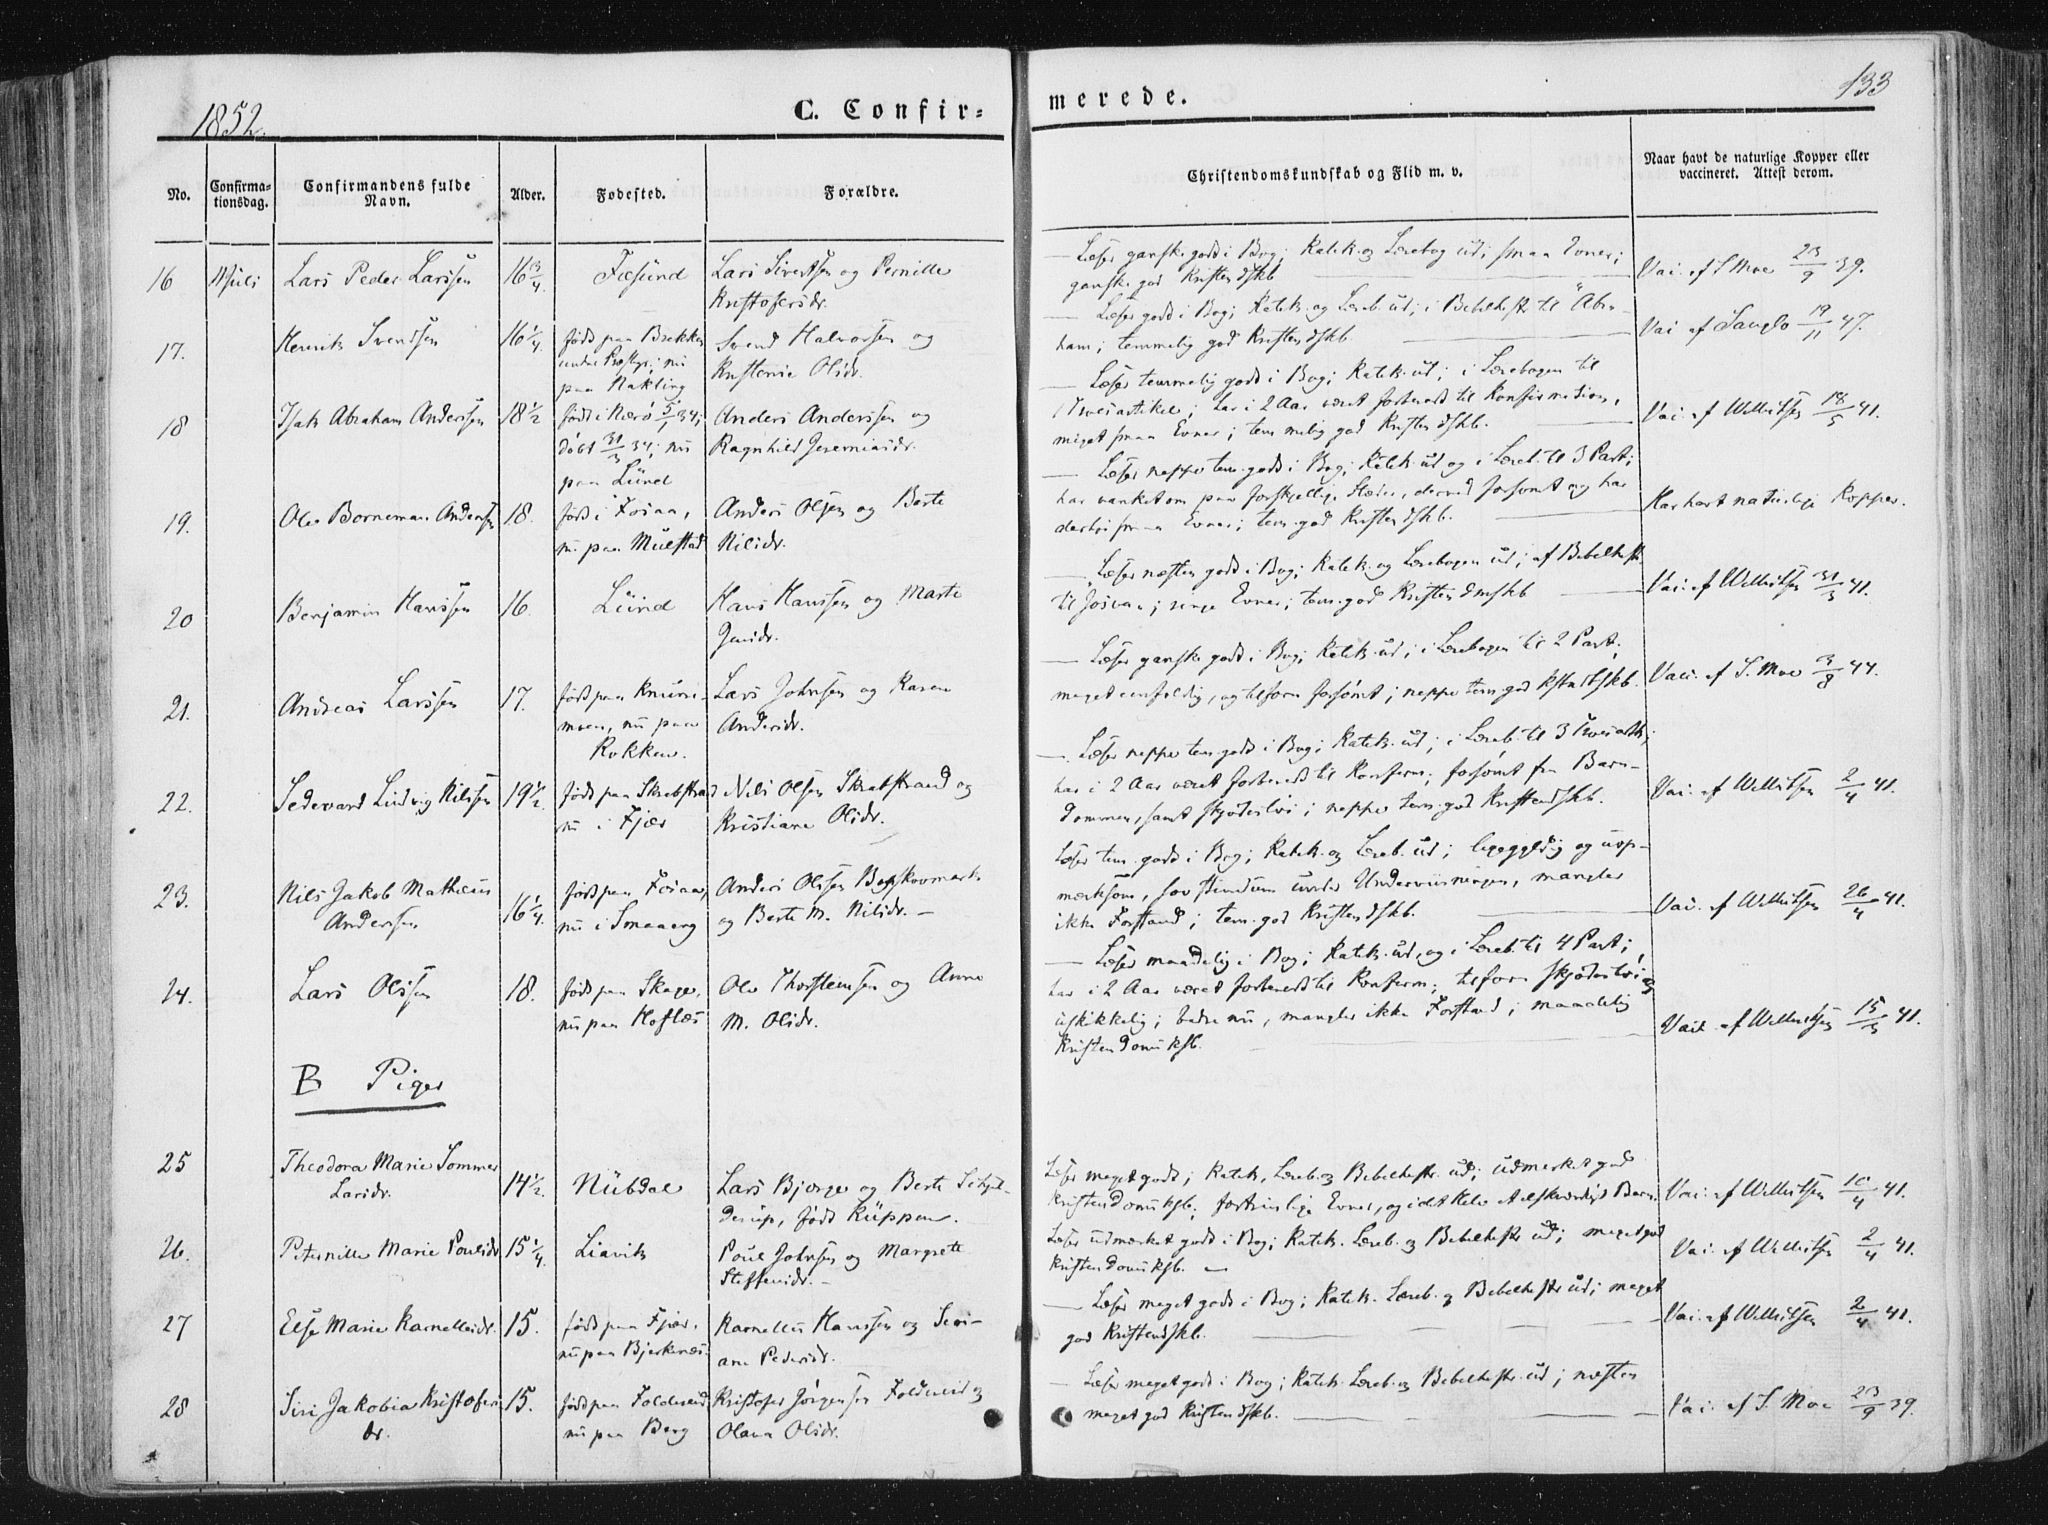 1852.
C. Confirmerede.
133
No.
Confirmationsdag.
Confirmandens fulde Navn.
Alder.
Fødested.
Forældre.
Christendomskundskab og Flid m. v.
Naar havt de naturlige Kopper eller vaccineret. Attest derom.
16 11 Juli Lars Peder Larssen 16 3/4. Fosund Lars Sivertsen og Pernille Kristofersdr.
— Læser ganske godt i Bog; Katek. og Lærebog ud; smaa Evner;
ganske god Kristendskb.
Vai. af S Moe 23/9 39.
17. Henrik Svendsen 16 1/4. født paa Brekken nu paa Hakling Svend Halvorsen og Olsdr.
— Læser godt i Bog; Katek. og Læreb. ud; i Bibelhist. til Abra-
ham; temmelig god Kristendskb
Vai af Sanglo 19/11 47.
18 Isak Abraham Anderssen 18 1/2 født i Nærø 5/1 34; døbt 31/3 34; nu paa Lund Anders Anderssen og Ragnhild Jeremiasdr.
— Læser temmelig godt i Bog; Katek. ud; i Lærebogen til
Troesartikel; har i 2 Aar været forberedt til Konfirmation,
meget smaa Evner; temmelig god Kristendskb.
Vai. af Willertsen 18/5 41.
19. Ole Borneman Andersen 18. født i Fosaa, nu paa Mulstad Anders Olsen og Berte Nilsdr.
— Læser neppe tem. godt i Bog; Katek. ud og i Læreb. til 3 Part;
har vanket om paa forskjellige Stæder, derved forsømt og har
derhos smaa Evner; tem. god Kristendskb.
Har havt naturlige Kopper.
20 Benjamin Hanssen 16. Lund Hans Hanssen og Marte Jensdr.
— Læser næsten godt i Bog; Katek. og Lærebogen ud; af Bibelhist.
til Josva; ringe Evner; tem. god Kristendmskb
Vai. af Willertsen 31/3 41.
21. Andreas Larssen 17. født paa moen, nu paa Rokken. Lars Johnsen og Karen Andersdr.
— Læser ganske godt i Bog; Katek. ud; i Lærebogen til 2 Part;
meget eenfoldig, og tilforn forsømt; neppe tem. god
Vaci. af S. Moe 3/8 44.
22. Sedevard Ludvig Nilssen 19 1/2. født paa Skrabstrand nu i Fjær Nils Olsen Skrabstrand og Kristiane Olsdr.
— Læser neppe tem. godt i Bog; Katek. ud; i Læreb. til 3 Troesartk;
har i 2 Aar været forberedt til Konfirm; forsømt fra Barn-
dommen, samt skjødesløs; neppe tem. god Kristendskb.
Vai. af Willertsen 2/4 41.
23. Nils Jakob Mathæus Andersen 16 1/4. født paa Fosaa, nu i Anders Olssen og Berte M. Nilsdr. —
Læser tem. godt i Bog; Katek. og Læreb. ud; ligegyldig og uop-
mærksom, sov stundum under Underviisningen, mangler
ikke Forstand; tem. god Kristendskb.
Vai. af Willertsen 26/4 41.
24. Lars Olssen 18. født paa Skage, nu paa Hoflæs Ole Thorstensen og Anne M. Olsdr.
— Læser maadelig i Bog; Katek. ud, og i Læreb. til 4 Part;
har i 2 Aar været forberedt til Konfirm; tilforn skjødesløs og
uskikkelig; bedre nu, mangler ikke Forstand; maadelig
Kristendomskb.
Vai. af Willertsen 15/3 41.
B Piger
25 Theodora Marie Sommer Larsdr. 14 1/2. Nubdal Lars Bjørge og Berte født Kuppen.
Læser meget godt; Katek, Læreb. og Bibelhistr. ud; udmærket god
Kristendomskb; fortrinlige Evner, og i det Hele et elskværdigt Barn.
Vai. af Willertsen 10/4 41.
26. Peternille Marie Poulsdr. 15 1/4. Liavik Poul Johnsen og Margrete Steffensdr. —
Læser udmærket godt i Bog; Katek. Læreb. og Bibelhistr ud; meget god
Kristendomskb. —
Vai. af Willertsen 2/4 41.
27 Else Marie Karnelisdr. 15. født paa Fjær, nu paa Bjerkenæs. Karnelius Hanssen og Seri-
ane Pedersdr.
— Læser meget godt i Bog; Katek. Læreb. og Bibelhistr ud; meget
god Kristendskb.
Vai. af Willertsen 2/4 41.
28 Siri Jakobia Kristofers dr. 15. født paa Foldereid nu paa Berg Kristofer Jørgensen Foldereid og Olava Olsdr.
— Læser meget godt i Bog; Katek. Læreb. og Bibelhistr. ud; næsten
meget god Kristendskb.
Vai. af S. Moe 23/9 39.